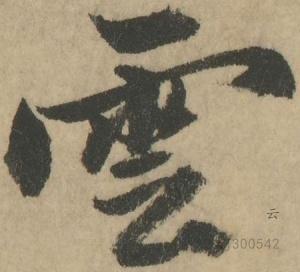 雲
云
300542